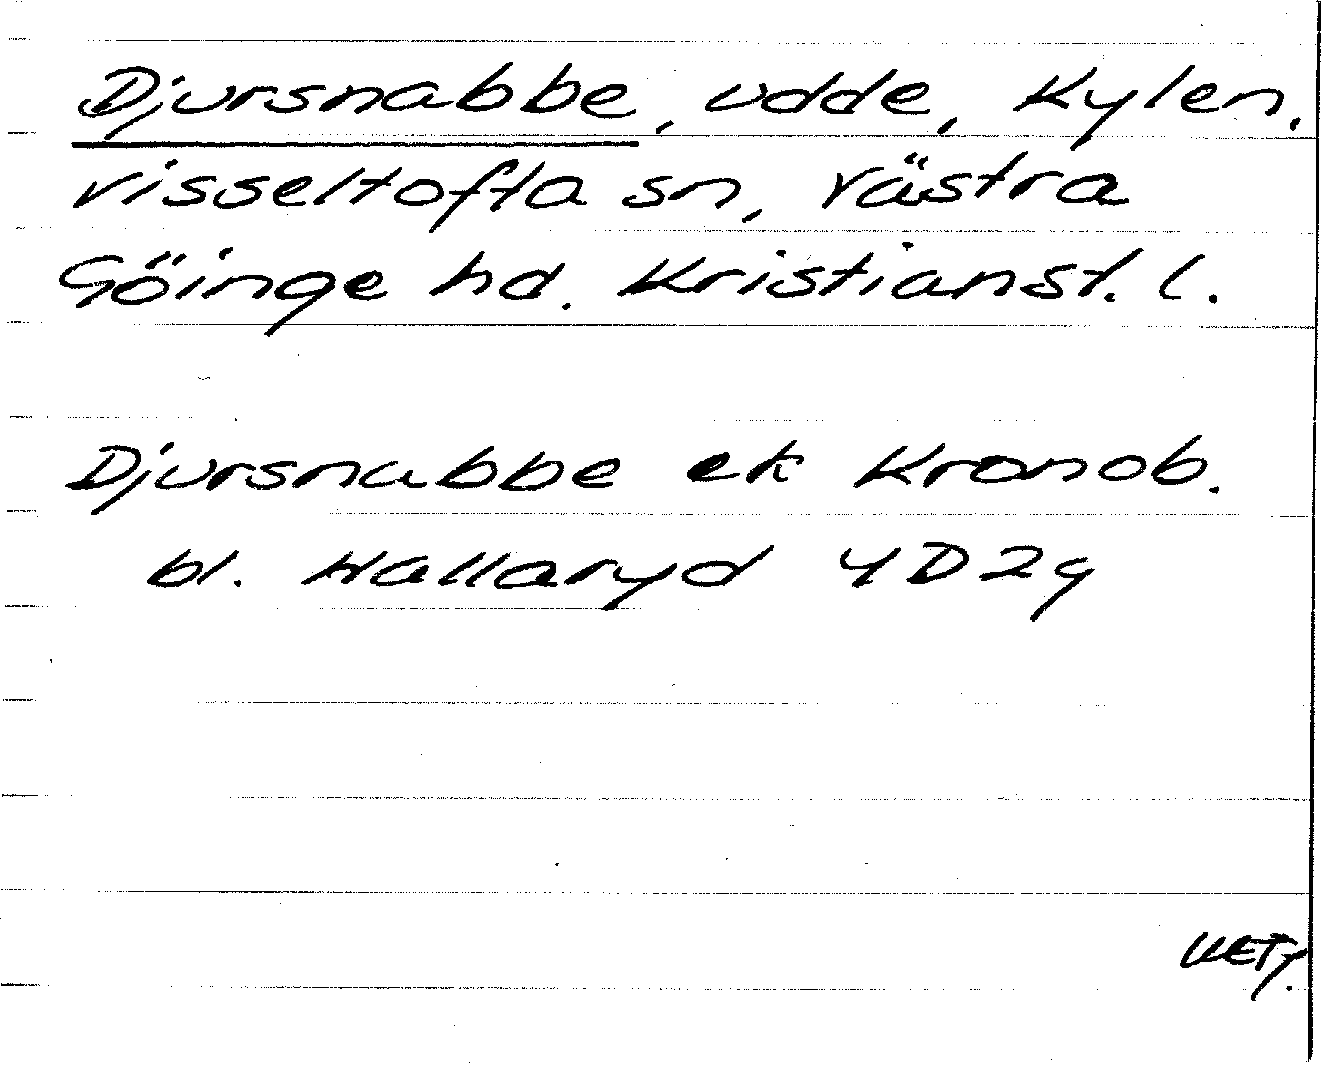 Djursnabbe, udde, Kylen.
Visseltofta sn, Västra
Göinge hd. Kristianst. l.
Djursnabbe ek Kronob.
bl. Hallaryd 4D2g